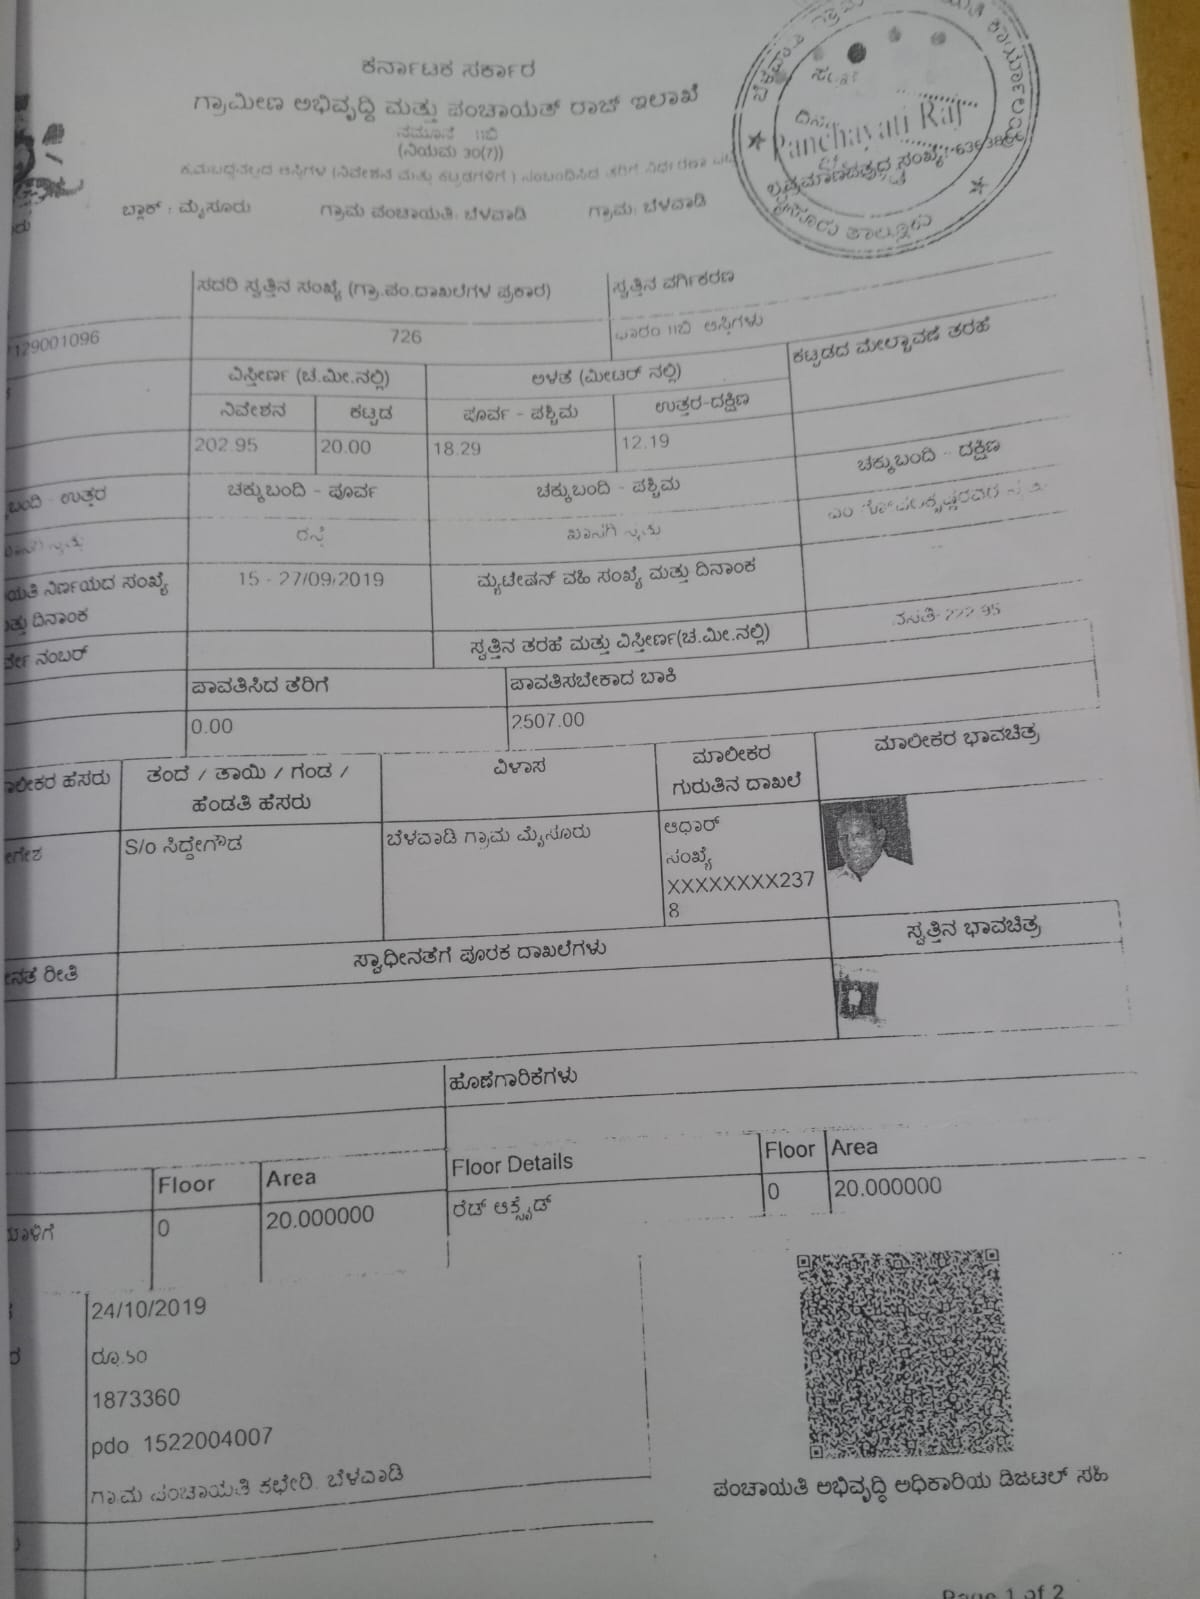 ಕರ್ನಾಟಕ ಸರ್ಕಾರ
ಗ್ರಾಮೀಣ ಅಭಿವೃದ್ಧಿ ಮತ್ತು ಪಂಚಾಯತ್ ರಾಜ್ ಇಲಾಖೆ
ನಮೂನೆ 11ಬಿ
(ನಿಯಮ 30(7))
ಬ್ಲಾಕ್ : ಮೈಸೂರು ಗ್ರಾಮ ಪಂಚಾಯತಿ: ಬೆಳವಾಡಿ ಗ್ರಾಮ: ಬೆಳವಾಡಿ
Panchayati Raj
ಮೈಸೂರು ತಾಲ್ಲೂಕು
ಸದರಿ ಸ್ವತ್ತಿನ ಸಂಖ್ಯೆ (ಗ್ರಾ.ಪಂ.ದಾಖಲೆಗಳ ಪ್ರಕಾರ) ಸ್ವತ್ತಿನ ವರ್ಗೀಕರಣ
129001096 726 ಫಾರಂ 11ಬಿ ಆಸ್ತಿಗಳು
ವಿಸ್ತೀರ್ಣ (ಚ.ಮೀ.ನಲ್ಲಿ) ಅಳತೆ (ಮೀಟರ್ ನಲ್ಲಿ) ಕಟ್ಟಡದ ಮೇಲ್ಚಾವಣಿ ತರಹೆ
ನಿವೇಶನ ಕಟ್ಟಡ ಪೂರ್ವ - ಪಶ್ಚಿಮ ಉತ್ತರ-ದಕ್ಷಿಣ
202.95 20.00 18.29 12.19
ಬಂದಿ - ಉತ್ತರ ಚಕ್ಕುಬಂದಿ - ಪೂರ್ವ ಚಕ್ಕುಬಂದಿ - ಪಶ್ಚಿಮ ಚಕ್ಕುಬಂದಿ - ದಕ್ಷಿಣ
ರಸ್ತೆ ಖಾಸಗಿ ಸ್ವತ್ತು
ಯತಿ ನಿರ್ಣಯದ ಸಂಖ್ಯೆ 15 - 27/09/2019 ಮ್ಯುಟೇಷನ್ ವಹಿ ಸಂಖ್ಯೆ ಮತ್ತು ದಿನಾಂಕ
ತ್ತು ದಿನಾಂಕ
ರ್ವೇ ನಂಬರ್ ಸ್ವತ್ತಿನ ತರಹೆ ಮತ್ತು ವಿಸ್ತೀರ್ಣ(ಚ.ಮೀ.ನಲ್ಲಿ) ವಸತಿ-222.95
ಪಾವತಿಸಿದ ತೆರಿಗೆ ಪಾವತಿಸಬೇಕಾದ ಬಾಕಿ
0.00 2507.00
ಾಲೀಕರ ಹೆಸರು ತಂದೆ / ತಾಯಿ / ಗಂಡ / ವಿಳಾಸ ಮಾಲೀಕರ ಮಾಲೀಕರ ಭಾವಚಿತ್ರ
ಹೆಂಡತಿ ಹೆಸರು ಗುರುತಿನ ದಾಖಲೆ
ಗೇಶ S/o ಸಿದ್ದೇಗೌಡ ಬೆಳವಾಡಿ ಗ್ರಾಮ ಮೈಸೂರು ಆಧಾರ್
ಸಂಖ್ಯೆ
XXXXXXXX237
8
ೀನತೆ ರೀತಿ ಸ್ವಾಧೀನತೆಗೆ ಪೂರಕ ದಾಖಲೆಗಳು ಸ್ವತ್ತಿನ ಭಾವಚಿತ್ರ
ಹೊಣೆಗಾರಿಕೆಗಳು
Floor Area Floor Details Floor Area
ಮಾಳಿಗೆ 0 20.000000 ರೆಡ್ ಆಕ್ಸೈಡ್ 0 20.000000
24/10/2019
ರೂ.50
1873360
pdo 1522004007
ಗ್ರಾಮ ಪಂಚಾಯತಿ ಕಛೇರಿ, ಬೆಳವಾಡಿ
ಪಂಚಾಯತಿ ಅಭಿವೃದ್ಧಿ ಅಧಿಕಾರಿಯ ಡಿಜಿಟಲ್ ಸಹಿ
Page 1 of 2